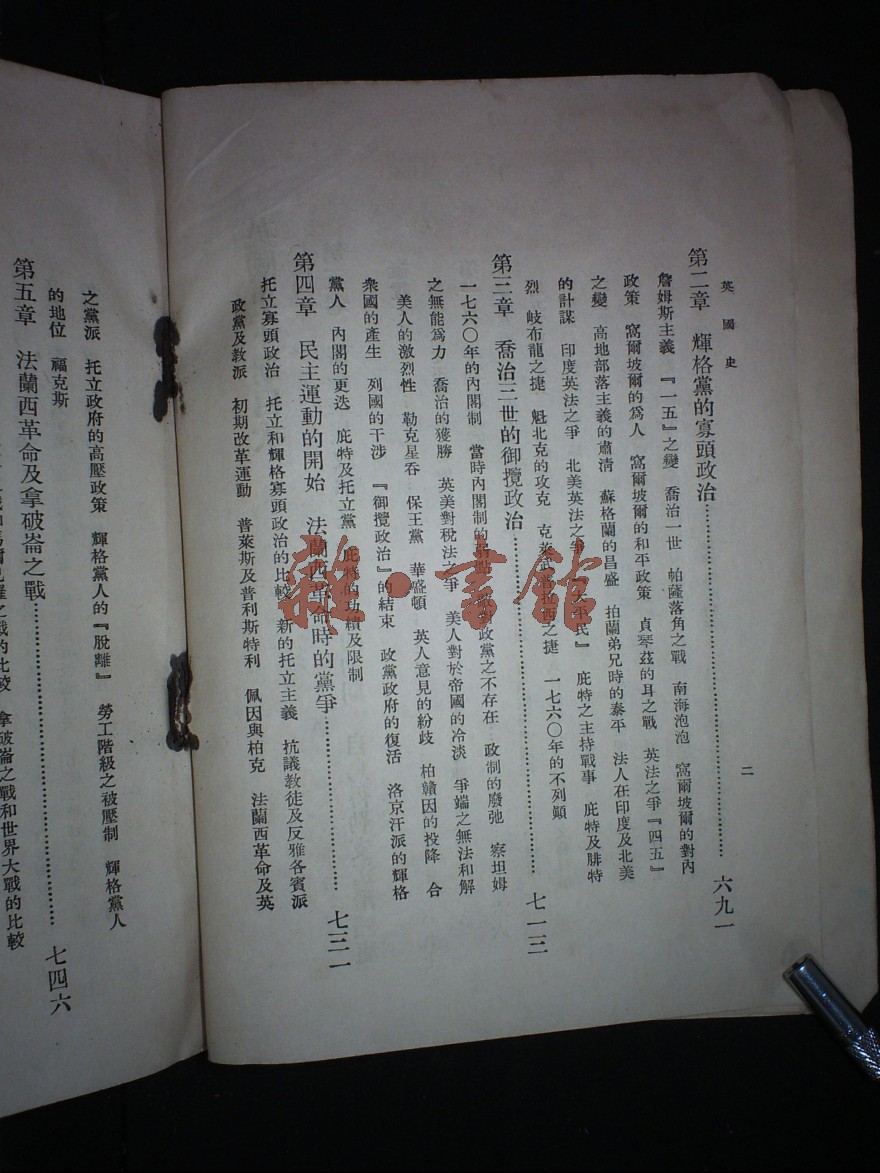 英國史
二
第二章 輝格黨的寡頭政治……………………六九一
詹姆斯主義 『一五』之變 喬治一世 帕薩落角之戰 南海泡泡 窩爾坡爾的對內
政策 窩爾坡爾的爲人 窩爾坡爾的和平政策 貞琴茲的耳之戰 英法之爭『四五』
之變 高地部落主義的肅清 蘇格蘭的昌盛 拍蘭弟兄時的泰平 法人在印度及北美
的計謀 印度英法之爭 北美英法之爭 『大平民』 庇特之主持戰事 庇特及腓特
烈 岐布龍之捷 魁北克的攻克 克萊武 之捷 一七六〇年的不列顛
第三章 喬治三世的御攬政治……………………七一三
一七六〇年的內閣制 當時內閣制的弱點 政黨之不存在 政制的廢弛 察坦姆
之無能爲力 喬治的獲勝 英美對稅法之爭 美人對於帝國的冷淡 爭端之無法和解
美人的激烈性 勒克星吞 保王黨 華盛頓 英人意見的紛歧 柏贛因的投降 合
衆國的產生 列國的干涉 『御攬政治』的結束 政黨政府的復活 洛京汗派的輝格
黨人 內閣的更迭 庇特及托立黨 庇特的功績及限制
第四章 民主運動的開始 法蘭西革命時的黨爭……………………七三一
托立寡頭政治 托立和輝格寡頭政治的比較 新的托立主義 抗議教徒及反雅各賓派
政黨及教派 初期改革運動 普萊斯及普利斯特利 佩因與柏克 法蘭西革命及英
之黨派 托立政府的高壓政策 輝格黨人的『脫離』 勞工階級之被壓制 輝格黨人
的地位 福克斯
第五章 法蘭西革命及拿破崙之戰……………………七四六
之戰的比較 拿破崙之戰和世界大戰的比較
雜·書館